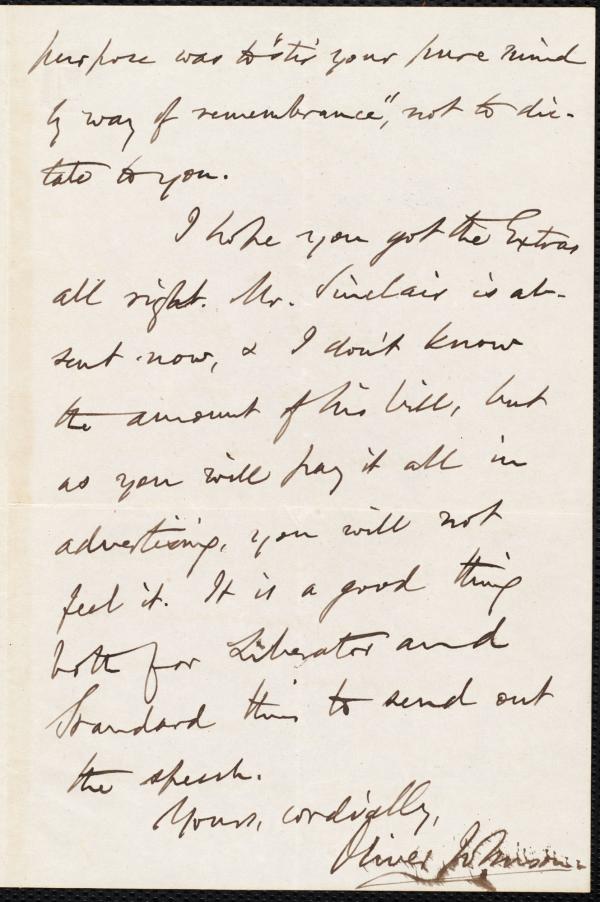 purpose was to "stir your pure mind
by way of remembrance", not to dic-
tate to you.
I hope you got the Extras
all right. Mr. Sinclair is ab-
sent now, & I don't know
the amount of his bill, but
as you will pay it all in
advertising, you will not
feel it. It is a good thing
both for Liberator and
Standard thus to send out
the speech.
Yours, cordially,
Oliver Johnson.